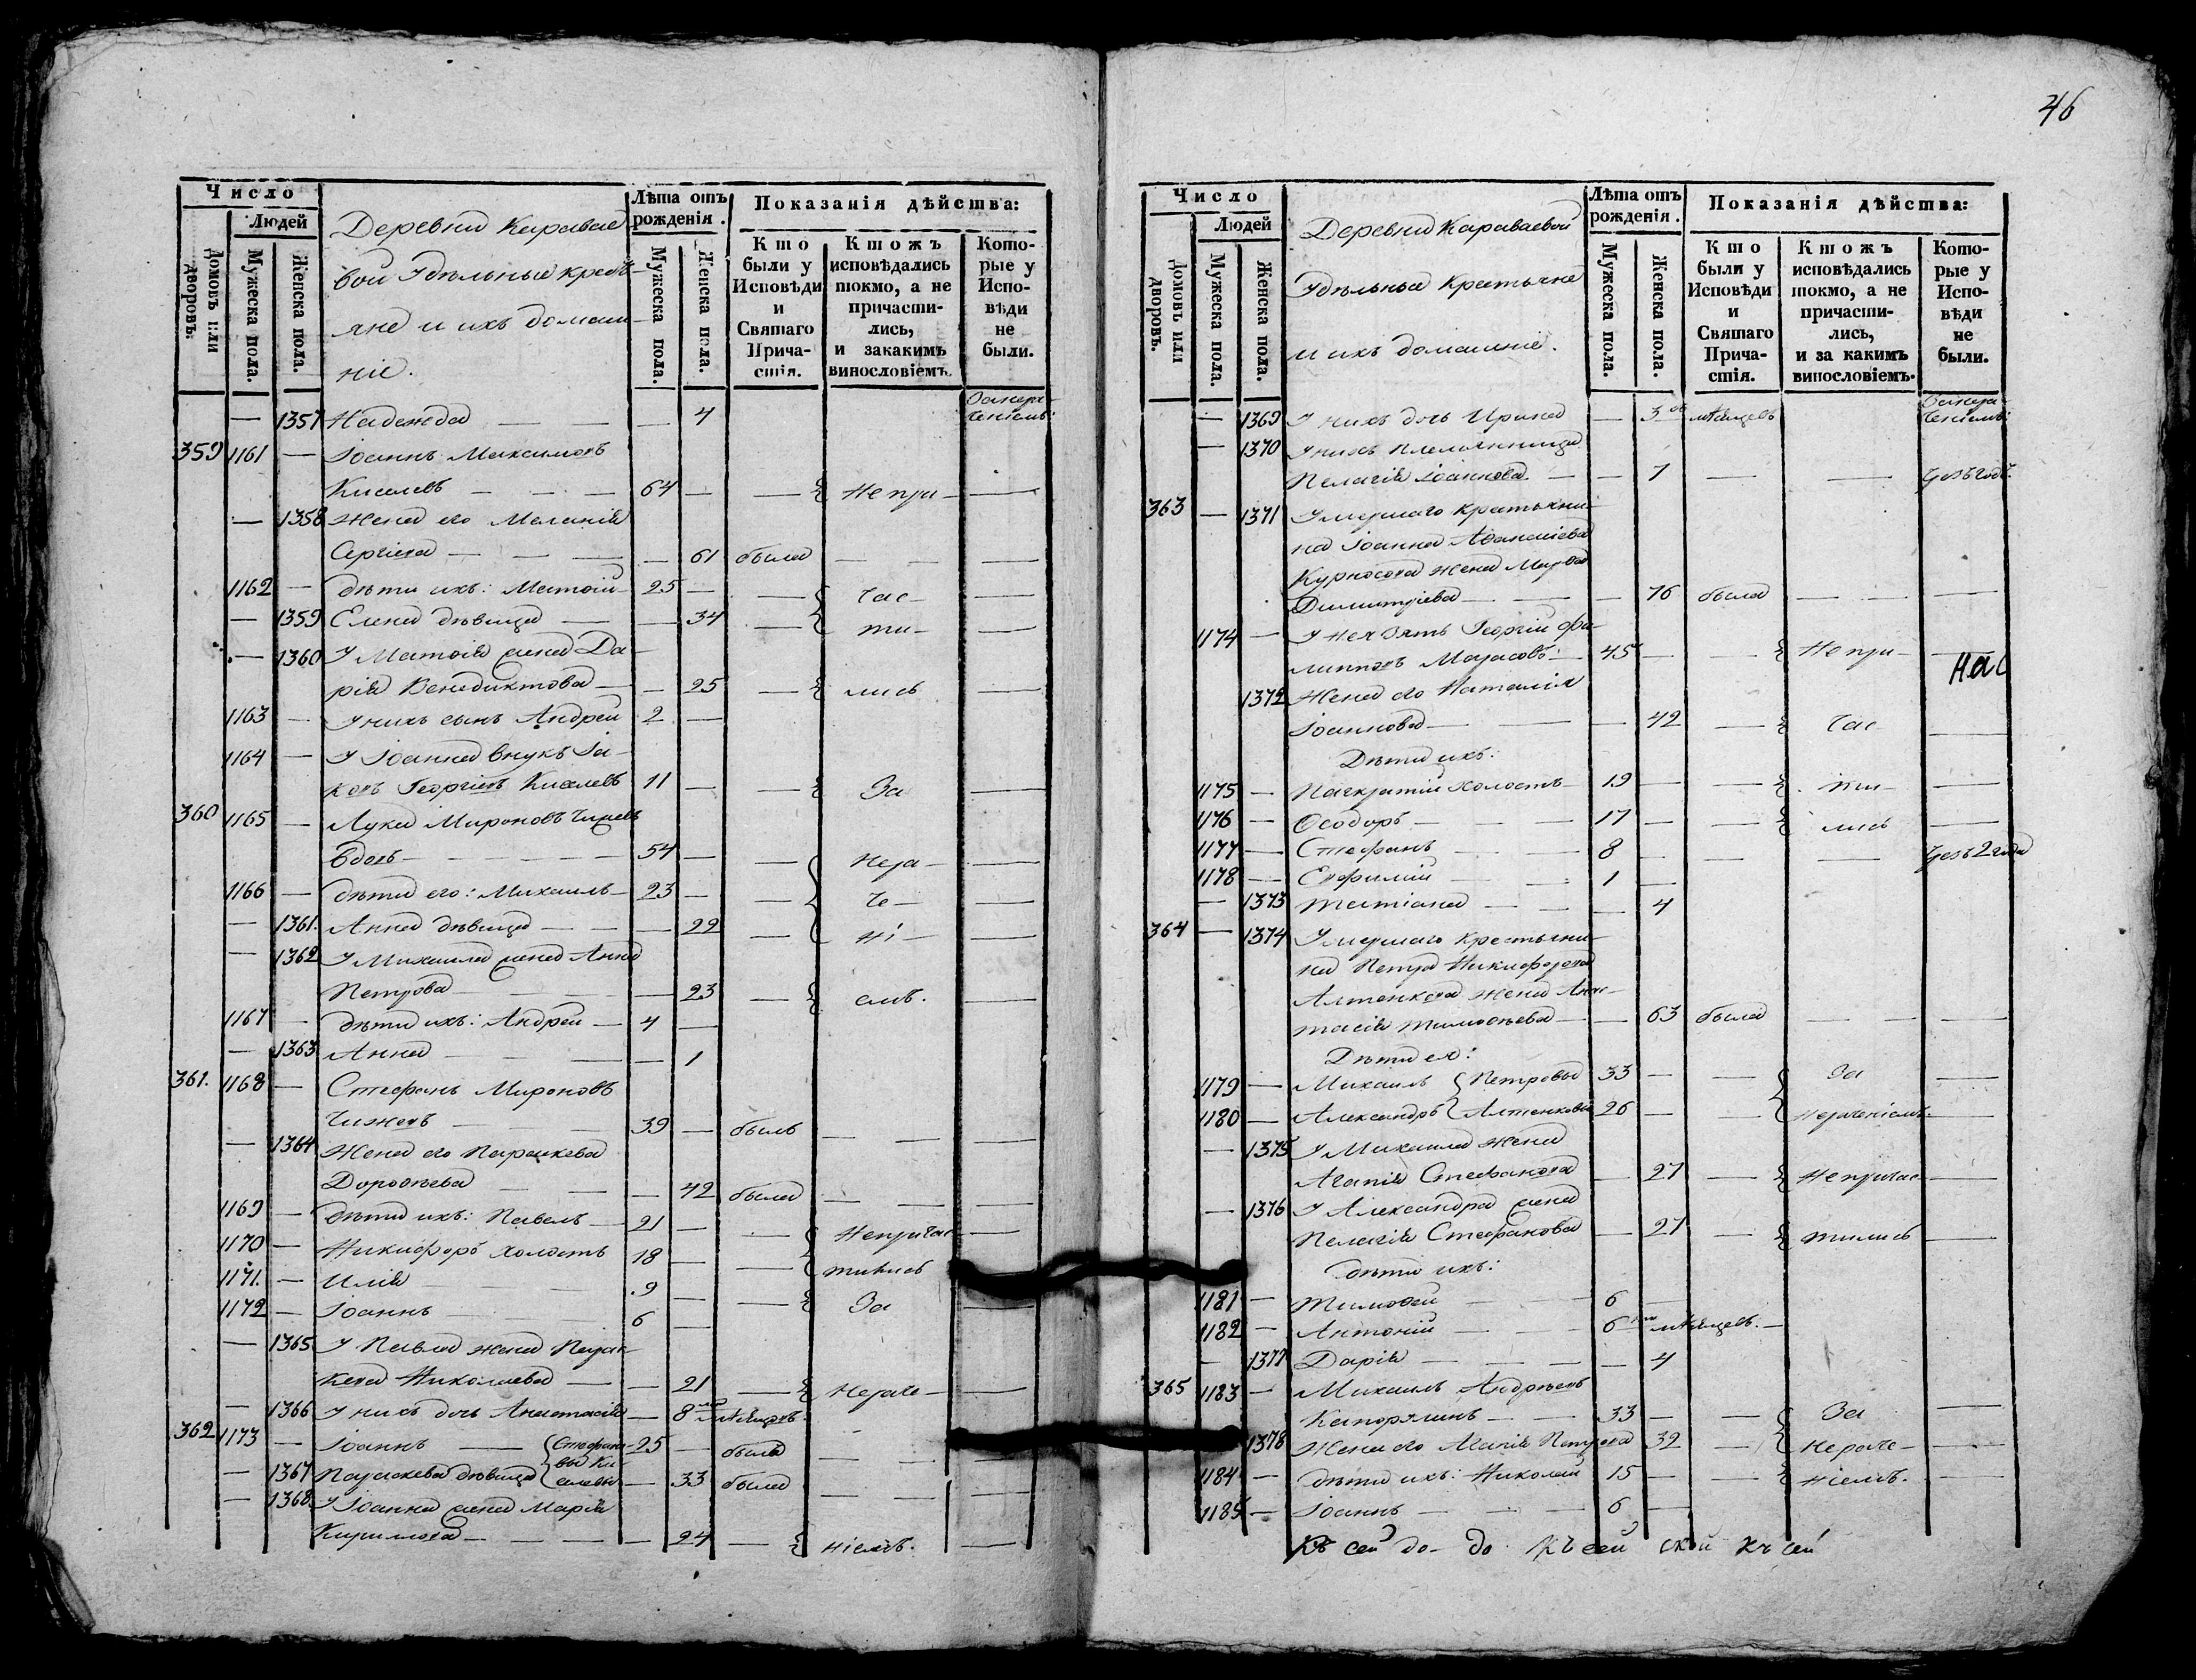 Число
Людей
Домовъ или дворовъ.
Мужеска пола.
Женска пола.
Деревни Каравае
вой Удѣльные кресть
яне и ихъ домаш
ніе.
Лѣта отъ рожденія.
Мужеска пола.
Женска пола.
Показанія дѣйства:
Кто были у Исповѣди и Святаго Прича-стія.
Ктожъ исповѣдались токмо, а не причасти-лись, и закакимъ винословіемъ.
Кото-рые у Испо-вѣди не были.
— 1357 Надежда — — — 4
359 1161 — Іоаннъ Максимовъ
Киселевъ — — — 64 — — Непри- —
— 1358 Жена его Меланія
Сергіева — — — — 61 была — — —
1162 — дѣти ихъ: Матѳій 25 — — час- —
— 1359 Елена дѣвица — — 34 — ти- —
— 1360 У Матѳія жена Да-
рія Венедиктова — — 25 — лись —
1163 — У нихъ сынъ Андрей 2 —
1164 — У Іоанна внукъ Іа-
ковъ Георгіевъ Киселевъ 11 — — За —
360 1165 — Лука Мироновъ
вдовъ — — — — 54 — — нера- —
1166 — дѣти его: Михаилъ — 23 — — че- —
— 1361. Анна дѣвица — — — 29 — ні- —
— 1362 У Михаила жена Анна
Петрова — — — 23 — емъ. —
1167 — дѣти ихъ: Андрей — 4 —
— 1363 Анна — — — — 1
361. 1168 — Стефанъ Мироновъ
Чижевъ — — 39 — былъ — — —
— 1364 Жена его Параскева
Дороѳеева — — — 42 была — — —
1169 — дѣти ихъ: Павелъ — 21 — — Непричас- —
1170 — Никифоръ холостъ 18 — — тились
1171. — Илія — 9 — — За —
1172 — Іоаннъ — 6 —
— 1365 У Павла жена Парас-
кева Николаева — — 21 — нераче- —
— 1366 У нихъ дочь Анастасія — 8 мѣсяцовъ.
362 1173 — Іоаннъ — Стефано- 25 — былъ — — —
вы Ки-
— 1367 Параскева дѣвица селевы — 33 была — — —
— 1368. У Іоанна жена Марія
Кирилова — — — — 24 — ніемъ. —
46
Число
Людей
Домовъ или дворовъ.
Мужеска пола.
Женска пола.
Деревни Караваевой
Удѣльные Крестьяне
и ихъ домашніе.
Лѣта отъ рожденія.
Мужеска пола.
Женска пола.
Показанія дѣйства:
Кто были у Исповѣди и Святаго Прича-стія.
Ктожъ исповѣдались токмо, а не причасти-лись, и за какимъ винословіемъ.
Кото-рые у Испо-вѣди не были.
— 1369 У нихъ дочь Ирина — 3 мѣсяцевъ
— 1370 У нихъ племянница
Пелагія Іоаннова — — 7 — —
363 — 1371 Умершаго крестьяни-
на Іоанна Аѳанасіева
Курносова жена Марѳа
Димитріева — — — 76 была — — —
1174 — У нея зять Георгій Фи-
липповъ 45 — — Непри- —
Нас
1372 Жена его Наталія
Іоаннова — — — 42 — час —
Дѣти ихъ:
1175 — Панкратій Холостъ 19 — — ти- —
1176 — Ѳеодоръ — — — 17 — — лись —
1177 — Стефанъ — — 8 — — — Чрезъ 2 года
1178 — Евфимій — — 1 —
— 1373 Татіана — — — 4
364 — 1374 Умершаго крестьяни-
на Петра Никифорова
Алтенкова жена Анас-
тасія Тимоѳеева — — 63 была — — —
Дѣти ея:
1179 — Михаилъ Петровы 33 — — За —
1180 — Александръ Алтенковы 26 — — нераченіемъ —
— 1375 У Михаила Жена
Агапія Стефанова — 27 — Непричас —
— 1376 У Александра жена
Пелагія Стефанова — 27 — тились —
дѣти ихъ:
1181 — Тимоѳей — — 6 —
1182 — Антоній — — 6 мѣсяцевъ. —
— 1377 Дарія — — — — 4
365 1183 — Михаилъ Андреевъ
33 — — За —
1378 Жена его Агапія Петрова 32 — нераче- —
1184 — дѣти ихъ: Николай 15 — — ніемъ. —
1185 — Іоаннъ — — — 6 —
Къ сей до- до Къ сей ской къ сей